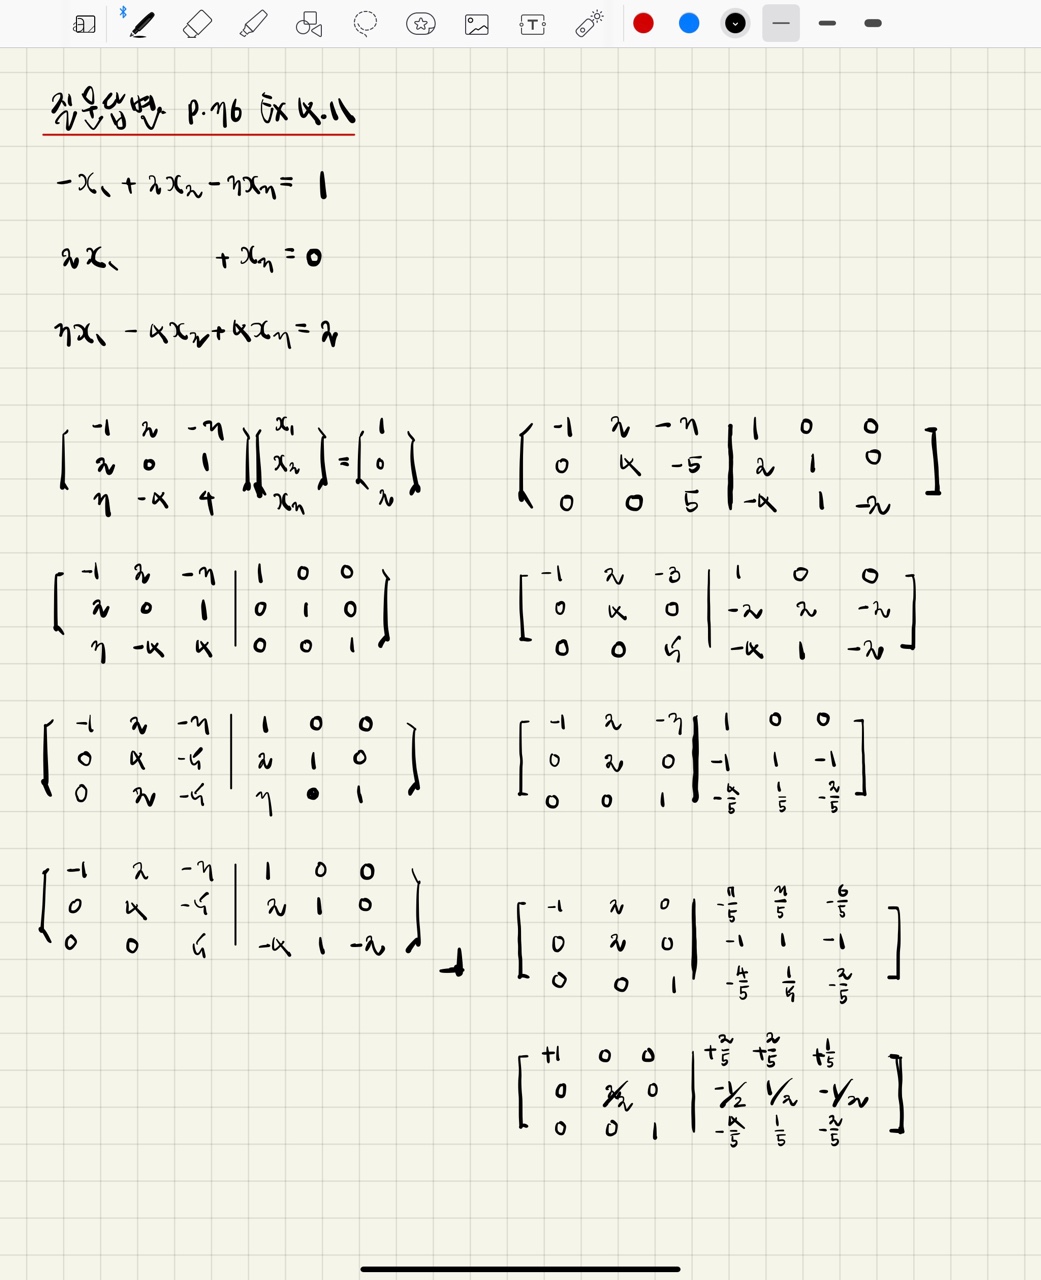 질문답변 P.76 Ex 4.11
-x₁ + 2x₂ - 3x₃ = 1
2x₁ + x₃ = 0
3x₁ - 4x₂ + 4x₃ = 2
-1 2 -3 x₁ 1
2 0 1 x₂ = 0
3 -4 4 x₃ 2
-1 2 -3 | 1 0 0
2 0 1 | 0 1 0
3 -4 4 | 0 0 1
-1 2 -3 | 1 0 0
0 4 -5 | 2 1 0
0 2 -5 | 3 0 1
-1 2 -3 | 1 0 0
0 4 -5 | 2 1 0
0 0 5 | -4 1 -2
-1 2 -3 | 1 0 0
0 4 -5 | 2 1 0
0 0 5 | -4 1 -2
-1 2 -3 | 1 0 0
0 4 0 | -2 2 -2
0 0 5 | -4 1 -2
-1 2 -3 | 1 0 0
0 2 0 | -1 1 -1
0 0 1 | -4/5 1/5 -2/5
-1 2 0 | -7/5 3/5 -6/5
0 2 0 | -1 1 -1
0 0 1 | -4/5 1/5 -2/5
+1 0 0 | +2/5 +2/5 +1/5
0 2/2 0 | -1/2 1/2 -1/2
0 0 1 | -4/5 1/5 -2/5